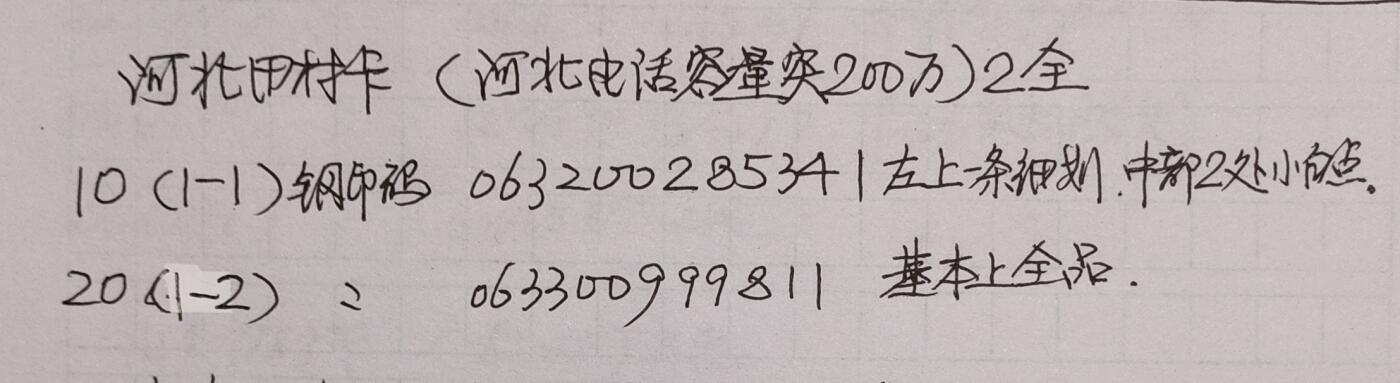 河北田村卡（河北电话容量突200万）2全
10（1-1）钢印码 063200285341 左上一条细划.中部2处小白点。
20（1-2） 〃 063300999811 基本上全品.